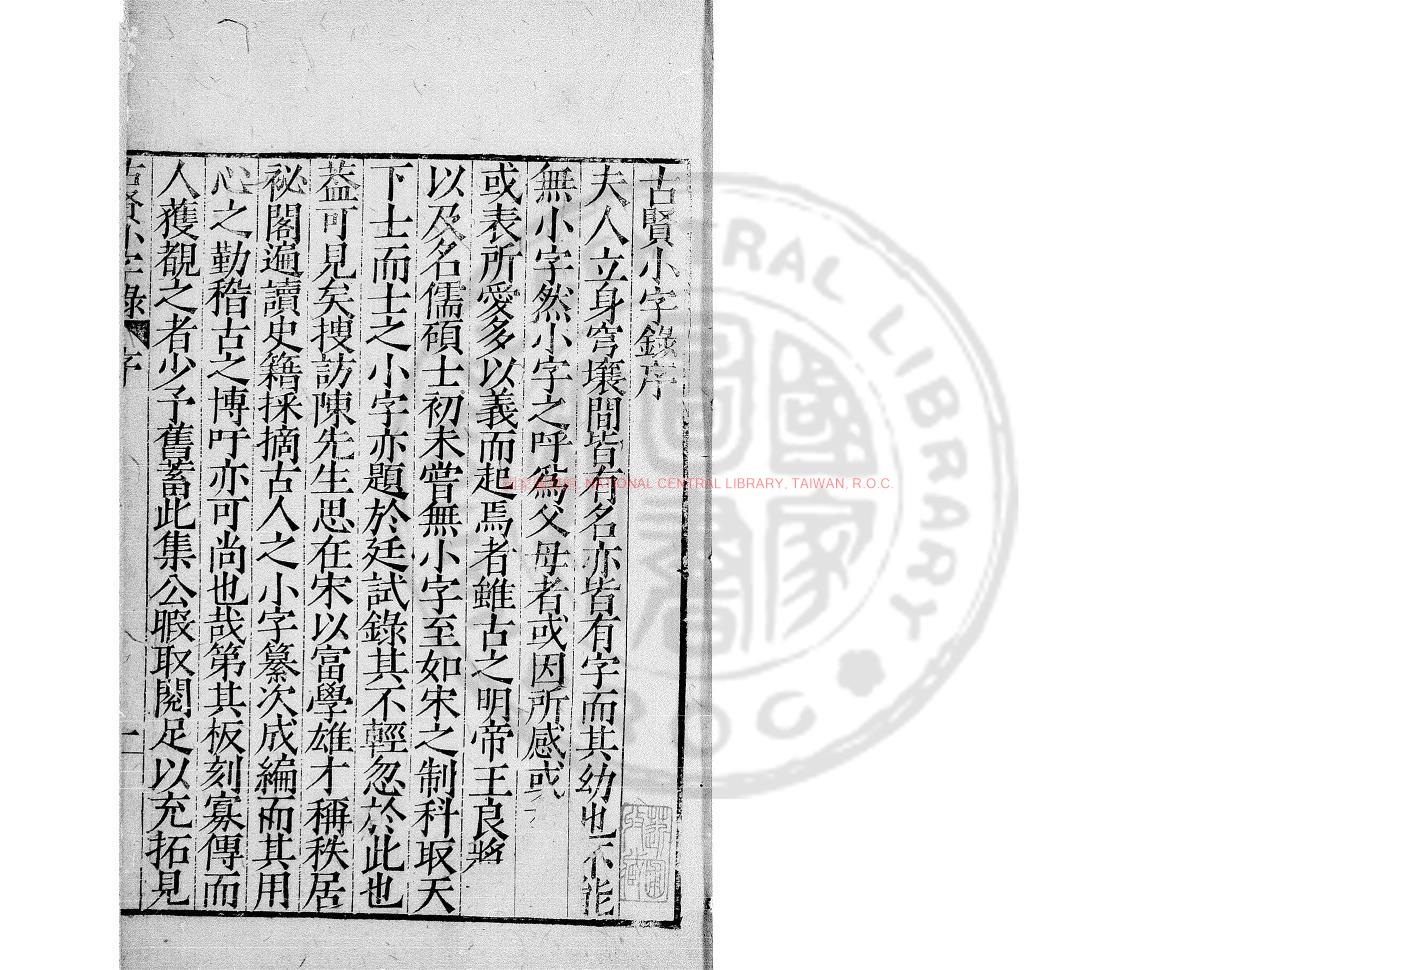 古賢小字錄序
夫人立身穹壤間皆有名亦皆有字而其幼也不能
無小字然小字之呼爲父母者或因所感或
或表所愛多以義而起焉者雖古之明帝王良將
以及名儒碩士初未嘗無小字至如宋之制科取天
下士而士之小字亦題於廷試錄其不輕忽於此也
葢可見矣搜訪陳先生思在宋以富學雄才稱秩居
祕閣遍讀史籍採摘古人之小字纂次成編而其用
心之勤稽古之博吁亦可尚也哉第其板刻寡傳而
人獲覩之者少予舊蓄此集公暇取閱足以充拓見
古賢小字錄 序 一
NATIONAL CENTRAL LIBRARY, TAIWAN, R.O.C.
國家圖書
CENTRAL LIBRARY
ROC